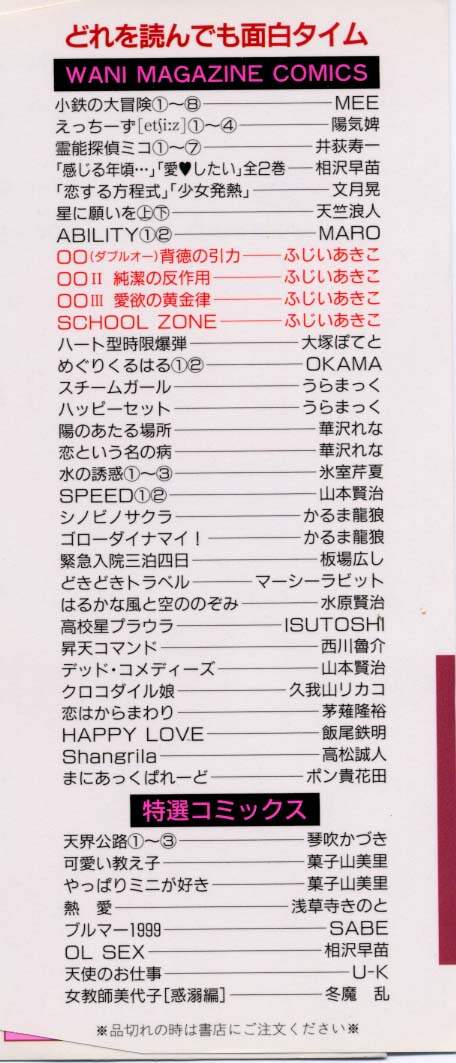 どれを読んでも面白タイム
WANI MAGAZINE COMICS
小鉄の大冒険①〜⑧――MEE
えっちーず[etʃi:z]①〜④――陽気婢
霊能探偵ミコ①〜⑦――井荻寿一
「感じる年頃…」「愛♥したい」全2巻――相沢早苗
「恋する方程式」「少女発熱」――文月晃
星に願いを㊤㊦――天竺浪人
ABILITY①②――MARO
OO(ダブルオー)背徳の引力――ふじいあきこ
OOⅡ 純潔の反作用――ふじいあきこ
OOⅢ 愛欲の黄金律――ふじいあきこ
SCHOOL ZONE――ふじいあきこ
ハート型時限爆弾――大塚ぽてと
めぐりくるはる①②――OKAMA
スチームガール――うらまっく
ハッピーセット――うらまっく
陽のあたる場所――華沢れな
恋という名の病――華沢れな
水の誘惑①〜③――氷室芹夏
SPEED①②――山本賢治
シノビノサクラ――かるま龍狼
ゴローダイナマイ!――かるま龍狼
緊急入院三泊四日――板場広し
どきどきトラベル――マーシーラビット
はるかな風と空ののぞみ――水原賢治
高校星プラウラ――ISUTOSHI
昇天コマンド――西川魯介
デッド・コメディーズ――山本賢治
クロコダイル娘――久我山リカコ
恋はからまわり――茅薙隆裕
HAPPY LOVE――飯尾鉄明
Shangrila――高松誠人
まにあっくぱれーど――ポン貴花田
特選コミックス
天界公路①〜③――琴吹かづき
可愛い教え子――菓子山美里
やっぱりミニが好き――菓子山美里
熱 愛――浅草寺きのと
ブルマー1999――SABE
OL SEX――相沢早苗
天使のお仕事――U-K
女教師美代子[惑溺編]――冬魔 乱
※品切れの時は書店にご注文ください※